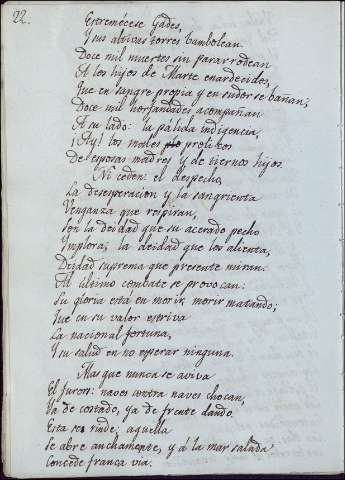 22.
Estremécese Gades,
Y sus altivas torres bambolean.
Doce mil muertes sin parar rodean
A los hijos de Marte enardecidos,
Que en sangre propia y en sudor se bañan;
Doce mil horfandades acompañan
A su lado: la pálida indigencia,
¡Ay! los males prolixos
De esposas madres y de tiernos hijos.
Ni ceden: el despecho,
La desesperacion y la sangrienta
Venganza que respiran,
Son la Deidad que su acerado pecho
Implora; la deidad que los alienta,
Deidad suprema que presente miran.
Al último combate se provocan:
Su gloria está en morir, morir matando;
Que en su valor estriva
La nacional fortuna,
Y su salud en no esperar ninguna.
Mas que nunca se aviva
El furor: naves contra naves chocan,
Ya de costado, ya de frente dando.
Esta se rinde, aquella
Se abre anchamente, y á la mar salada
Concede franca via.